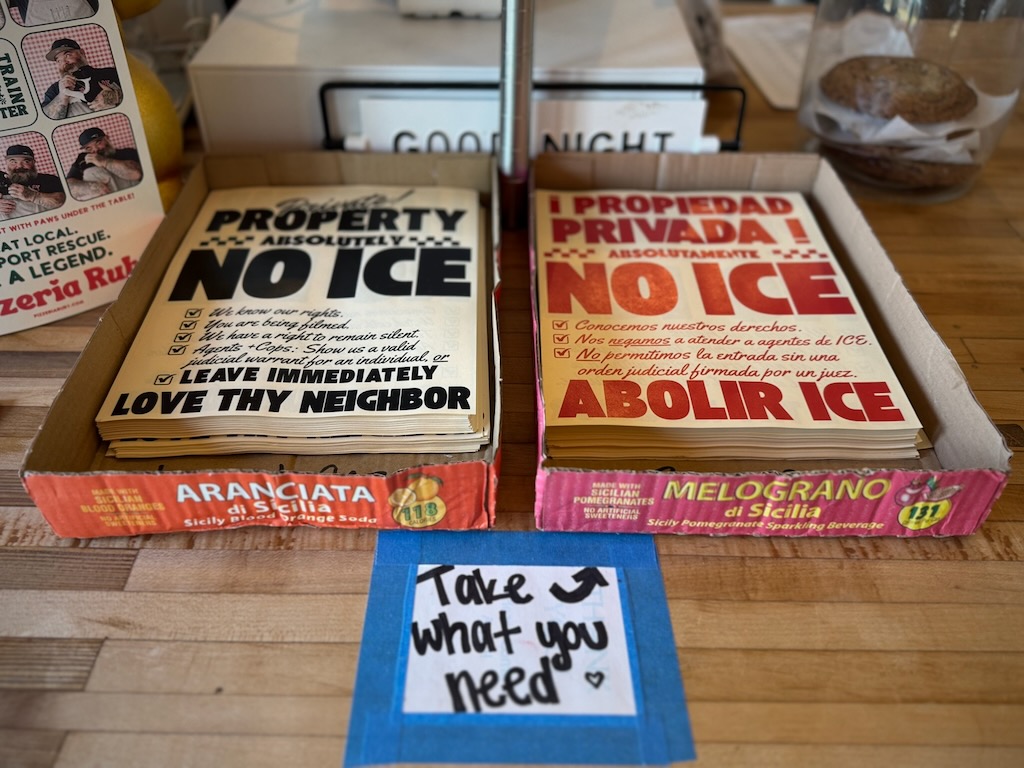 TRAIN
TER
ST WITH PAWS UNDER THE TABLE!
AT LOCAL.
PORT RESCUE.
A LEGEND.
zzeria Rub
GOOD NIGHT
Private!
PROPERTY
ABSOLUTELY
NO ICE
We know our rights.
You are being filmed.
We have a right to remain silent.
Agents + Cops: Show us a valid
judicial warrant for an individual, or
LEAVE IMMEDIATELY
LOVE THY NEIGHBOR
¡ PROPIEDAD
PRIVADA !
ABSOLUTAMENTE
NO ICE
Conocemos nuestros derechos.
Nos negamos a atender a agentes de ICE.
No permitimos la entrada sin una
orden judicial firmada por un juez.
ABOLIR ICE
MADE WITH
SICILIAN
BLOOD ORANGES
NO ARTIFICIAL
SWEETENERS
ARANCIATA
di Sicilia
Sicily Blood Orange Soda
118
CALORIES
MADE WITH
SICILIAN
POMEGRANATES
NO ARTIFICIAL
SWEETENERS
MELOGRANO
di Sicilia
Sicily Pomegranate Sparkling Beverage
131
CALORIES
Take
what you
need